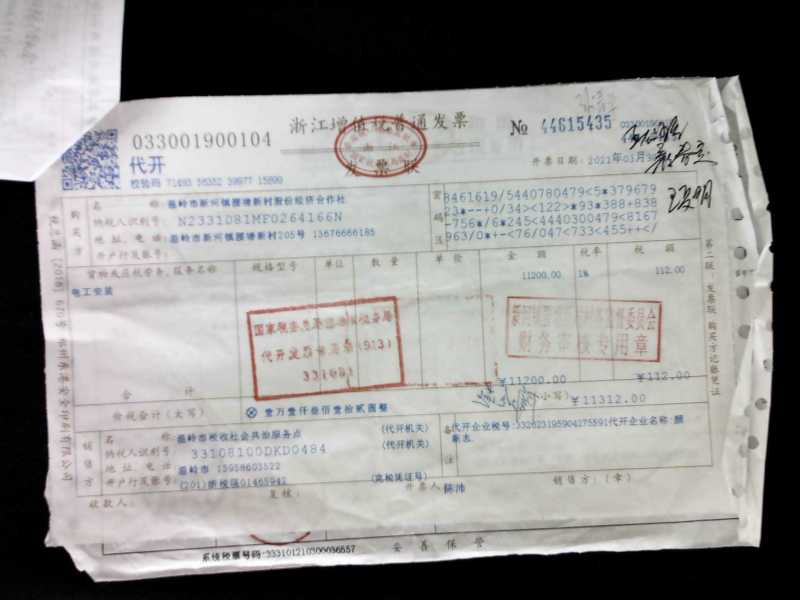 033001900104
浙江增值税普通发票
№ 44615435
代开
发票联
校验码 71493 56352 39977 15890
开票日期：2021年03月
购买方
名称：温岭市新河镇塘新村股份经济合作社
纳税人识别号：N2331081MF0264166N
地址、电话：温岭市新河镇塘新村205号 13676666185
开户行及账号：
密码区
8461619/5440780479<5*379679
23*--+0/34><122>*93*388+838
-756*/6*245<4440300479<8167
963/0*+-<76/047<733<455++</
货物或应税劳务、服务名称 规格型号 单位 数量 单价 金额 税率 税额
电工安装 11200.00 1% 112.00
国家税务总局温岭市税务局
代开发票专用章（913）
331081
财务审核专用章
合计 ¥11200.00 ¥112.00
价税合计（大写） ⊗ 壹万壹仟叁佰壹拾贰圆整 （小写） ¥11312.00
销售方
名称：温岭市税收社会共治服务点 （代开机关）
纳税人识别号：33108100DKD0484 （代开机关）
地址、电话：温岭市 15958603522
开户行及账号：(201) 01465942 （完税凭证号）
备注
代开企业税号：332623195904275591 代开企业名称：颜
志
收款人： 复核： 开票人：陈沛 销售方：（章）
第二联：发票联 购买方记账凭证
系统税票号码：333101210300036557 妥善保管